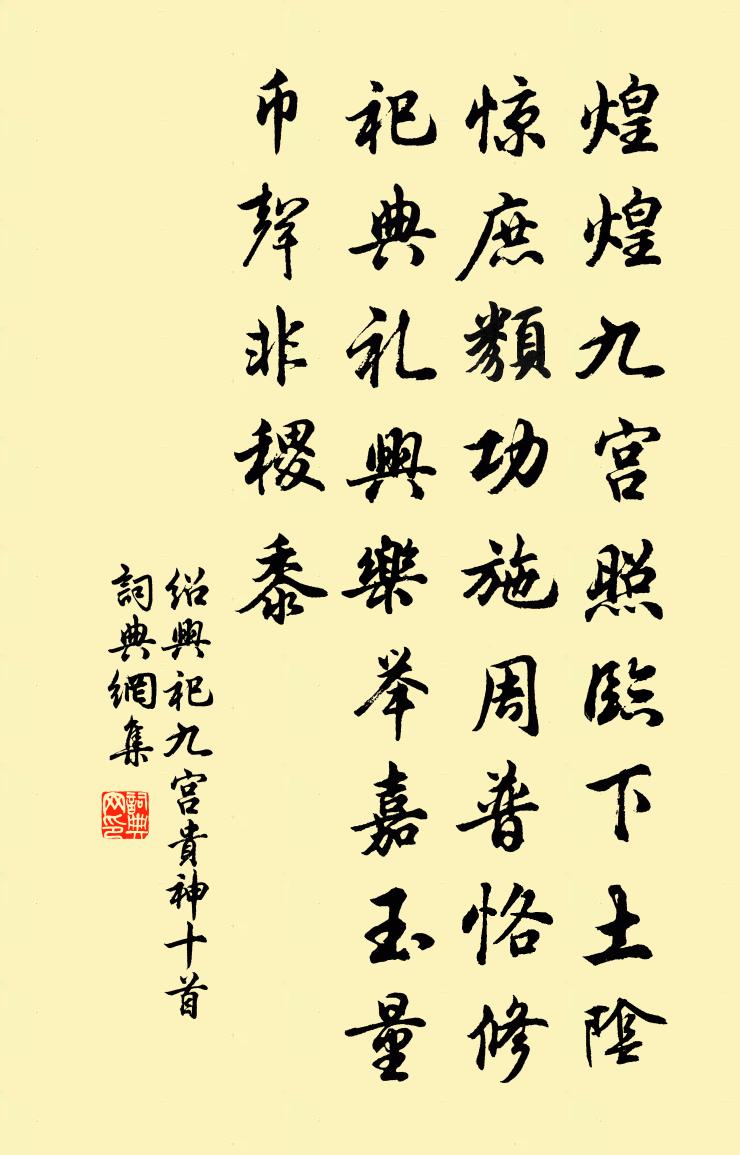 煌煌九宫照臨下土陰
惊庶類功施周普恪修
祀典礼興樂举嘉玉量
币聲非稷黍
紹興祀九宫貴神十首
詞典網集
詞典网印